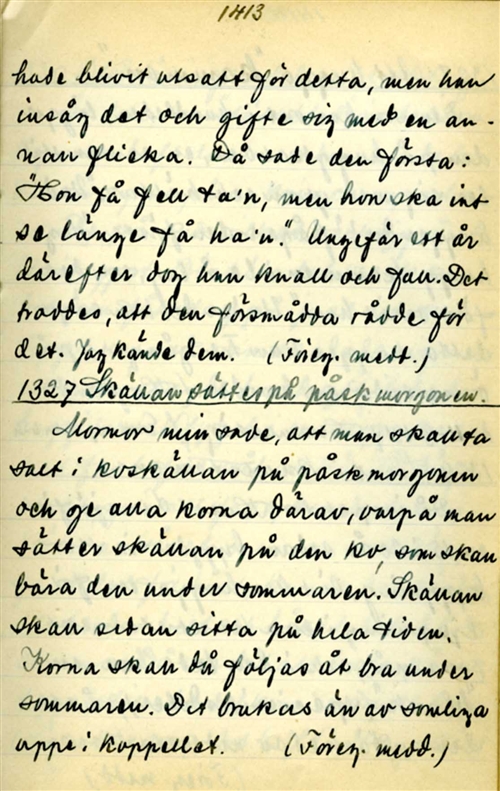 1413
hade blivit utsatt för detta, men han
insåg det och gifte sig med en an-
nan flicka. Då sade den första:
"Hon få fell ta'n, men hon ska int
se länge få ha'n." Ungefär ett år
därefter dog han knall och fall. Det
troddes, att den försmådda rådde för
det. Jag kände dem. (Föreg. medd.)
1327 Skällan sättes på påskmorgonen.
Mormor min sade, att man skall ta
salt i koskällan på påskmorgonen
och ge alla korna därav, varpå man
sätter skällan på den ko, som skall
bära den under sommaren. Skällan
skall sedan sitta på hela tiden.
Korna skall då följas åt bra under
sommaren. Det brukas än av somliga
uppe i kappellet. (Föreg. medd.)